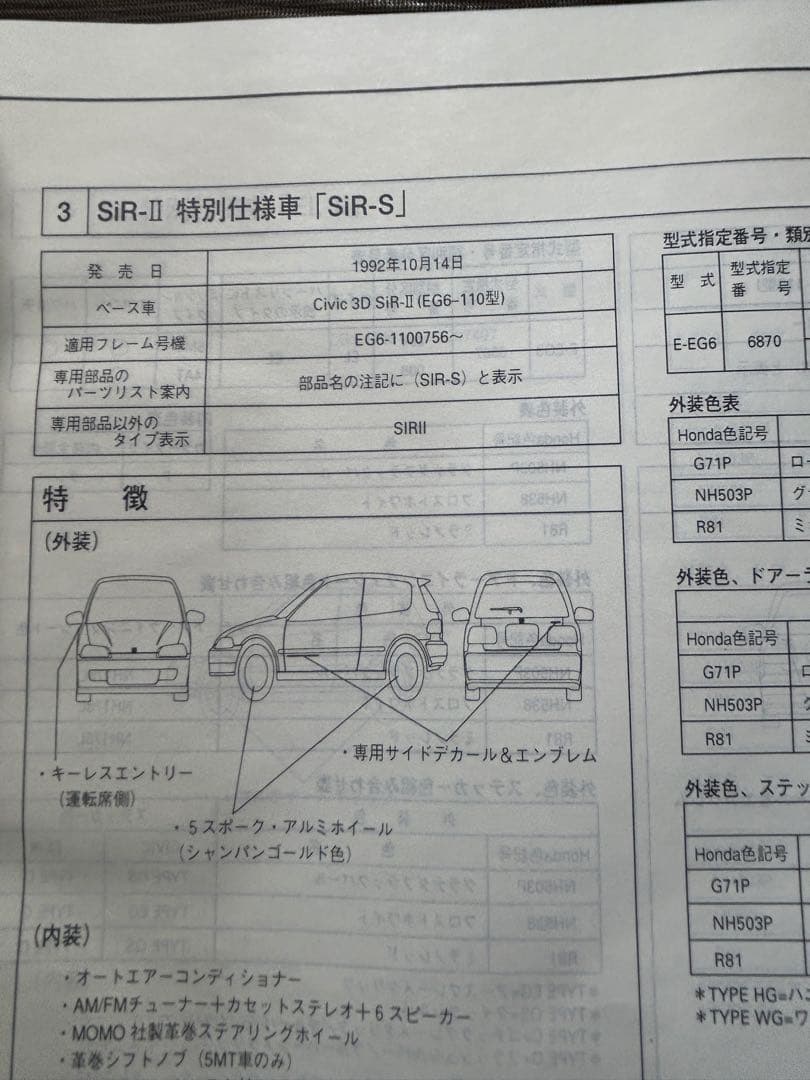 3 SiR-II 特別仕様車「SiR-S」
発売日 1992年10月14日
ベース車 Civic 3D SiR-II (EG6-110型)
適用フレーム号機 EG6-1100756〜
専用部品の
パーツリスト案内 部品名の注記に(SIR-S)と表示
専用部品以外の
タイプ表示 SIRII
特 徴
(外装)
・キーレスエントリー
(運転席側)
・専用サイドデカール&エンブレム
・5スポーク・アルミホイール
(シャンパンゴールド色)
(内装)
・オートエアーコンディショナー
・AM/FMチューナー+カセットステレオ+6スピーカー
・MOMO社製革巻ステアリングホイール
・革巻シフトノブ(5MT車のみ)
型式指定番号・類別
型式 型式指定
番号
E-EG6 6870
外装色表
Honda色記号
G71P ロー
NH503P グ
R81 ミ
外装色、ドアーラ
Honda色記号
G71P ロ
NH503P グ
R81 ミ
外装色、ステッ
Honda色記号
G71P
NH503P
R81
*TYPE HG=ハ
*TYPE WG=ワ